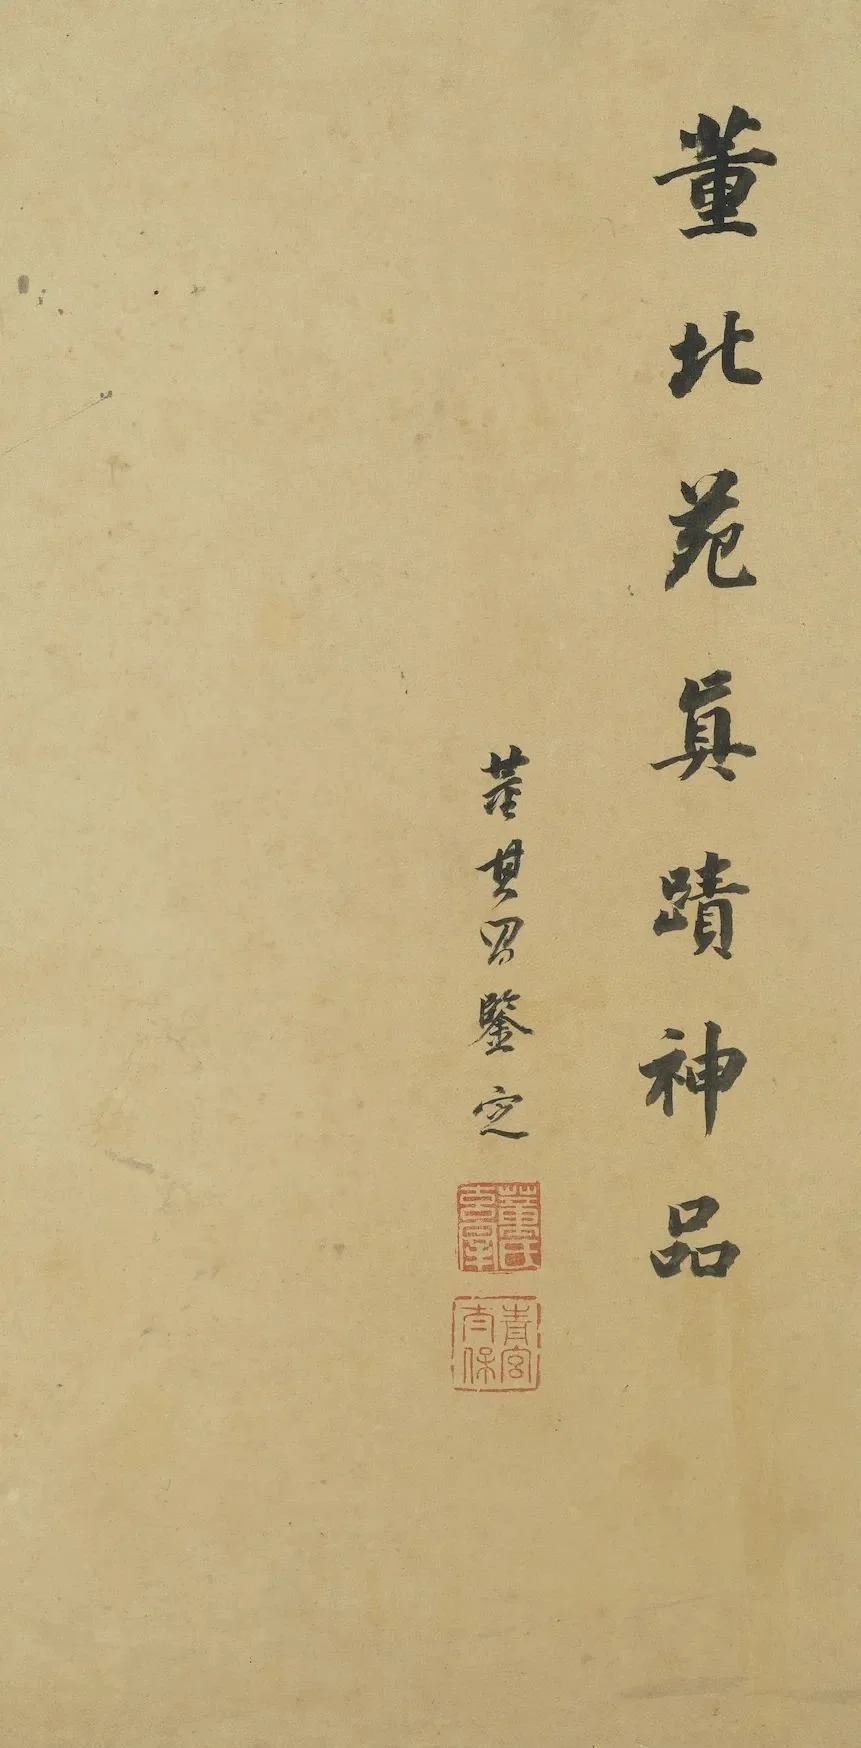 董北苑眞蹟神品
董其昌鑒定
董氏玄宰
青宮太保